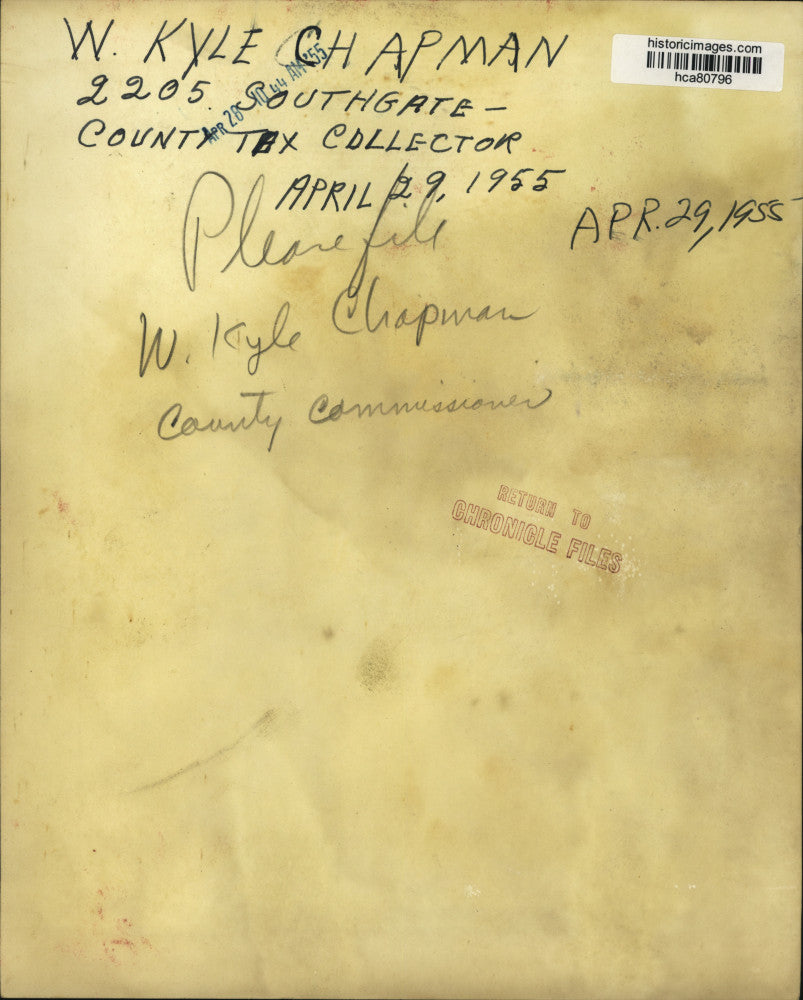 W. KYLE CHAPMAN
historicimages.com
hca80796
APR 28 10 44 AM '55
2205 SOUTHGATE-
COUNTY TAX COLLECTOR
APRIL 29, 1955
APR. 29, 1955
Please file
W. Kyle Chapman
County Commissioner
RETURN TO
CHRONICLE FILES